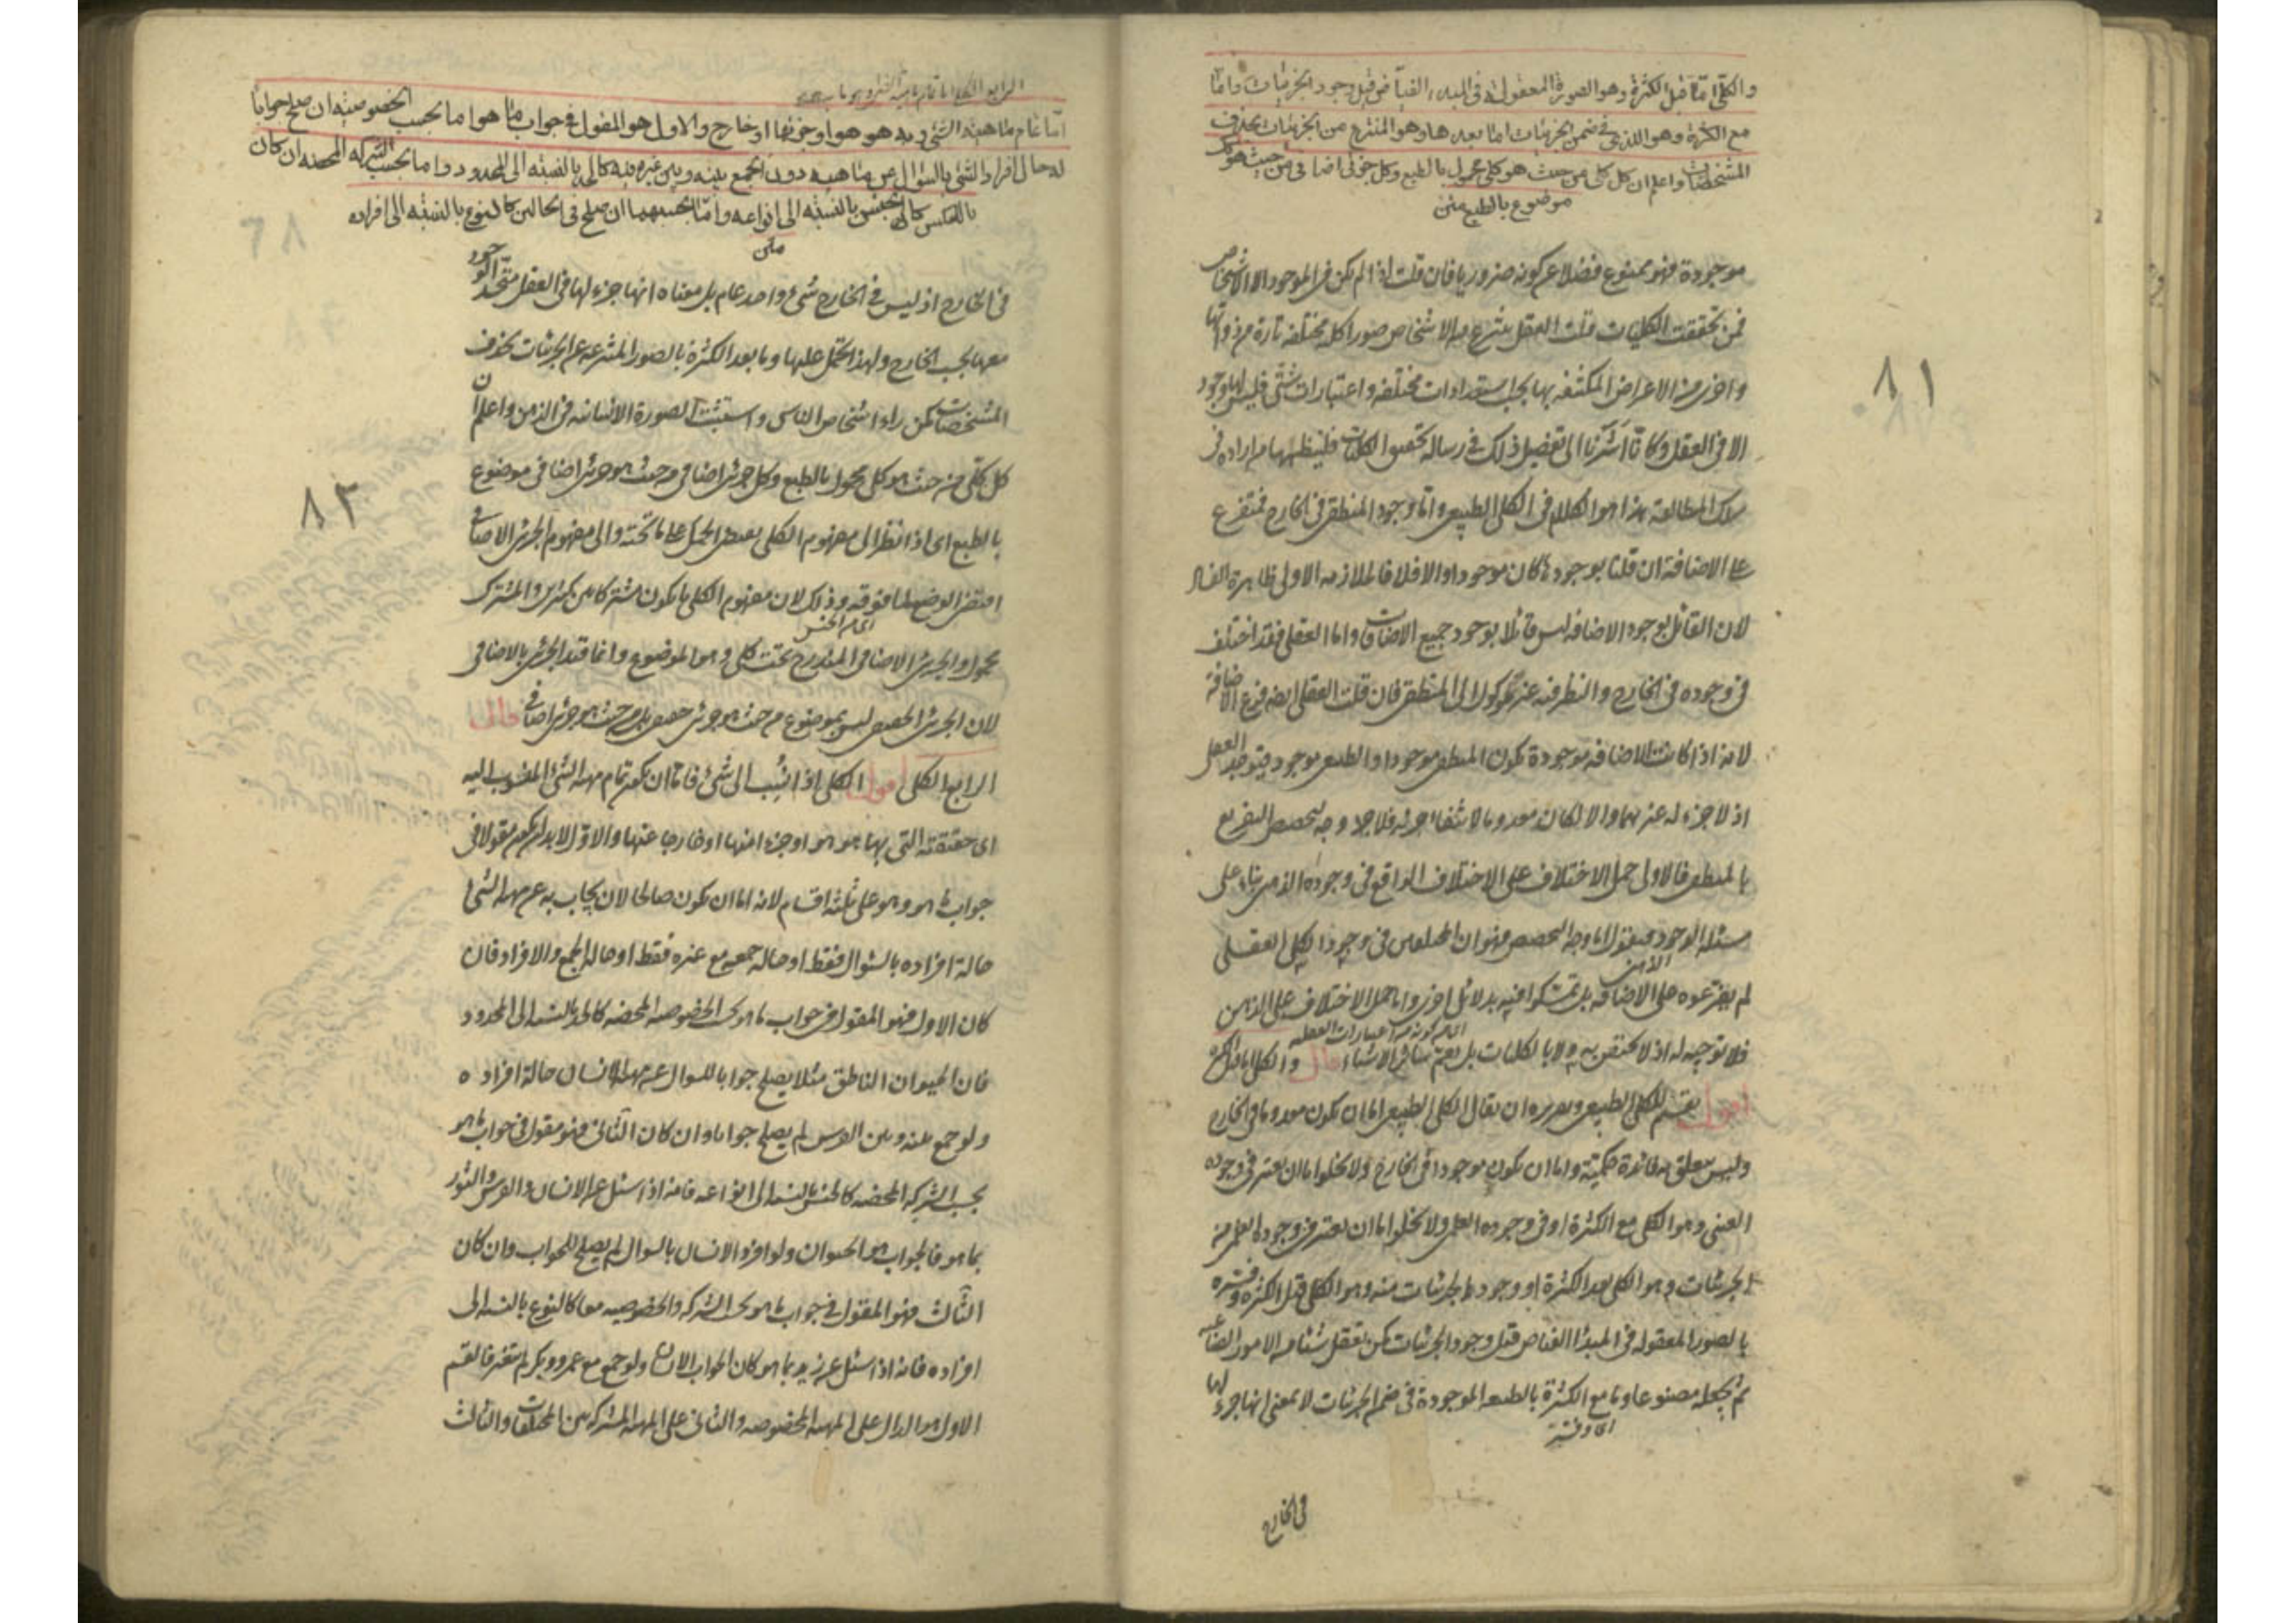 والكلي اما قبل الكثرة وهو الصورة المعقولة في المبدء الفياض قبل وجود الجزئيات واما
مع الكثرة وهو الذي في ضمن الجزئيات اما بعدها وهو المنتزع من الجزئيات بحذف
المشخصات واعلم ان كل كلي من حيث هو كلي محمول بالطبع وكل جزئي اضافي من حيث هو كك
موضوع بالطبع متن
موجودة فهو ممنوع فضلا عن كونه ضروريا فان قلت اذا لم يكن في الموجود الا الاشخاص
فمن تحققت الكليات قلت العقل ينتزع من الاشخاص صورا كلية مختلفة تارة من ذواتها
واخرى من الاعراض المكتنفة بها بحسب استعدادات مختلفة واعتبارات شتى فليس لها وجود
الا في العقل وكانا اشرنا الى تفصيل ذلك في رسالة تحقيق الكليات فليطلبها من اراده في
تلك المطالعة هذا هو الكلام في الكلي الطبيعي واما وجود المنطقي في الخارج فمتفرع
على الاضافة ان قلنا بوجودها كان موجودا والا فلا فالملازمة الاولى ظاهرة الفساد
لان القائل بوجود الاضافة ليس قائلا بوجود جميع الاضافات واما العقلي فقد اختلف
في وجوده في الخارج والنظر فيه عند موكول الى المنطقي فان قلت العقلي ايضا فرع الاضافة
لانه اذا كانت الاضافة موجودة يكون المنطقي موجودا والطبيعي موجود فيوجد العقلي
اذ لا جزء له غيرهما والا لكان معدوما لانتفاء جزئه فلا وجه لتخصيص التفريع
بالمنطقي فالاولى حمل الاختلاف على الاختلاف الواقع في وجوده الذهني بناء على
مسئلة الوجود فنقول اما وجه التخصيص فهو ان المختلفين في وجود الكلي العقلي
لم يفرعوه على الاضافة بل تمسكوا فيه بدلائل اخر واما حمل الاختلاف على الذهن
فلا توجيه له اذ لا يختص به ولا بالكليات بل يعم سائر الاشياء قال والكلي اما قبل الكثرة
اقول يقسم الكلي الطبيعي وتقريره ان يقال الكلي الطبيعي اما ان يكون معدوما في الخارج
وليس يتعلق به فائدة حكمية واما ان يكون موجودا في الخارج ولا يخلو اما ان يعتبر في وجوده
العيني وهو الكلي مع الكثرة او في وجوده العلمي ولا يخلو اما ان يعتبر في وجوده العلمي من
الجزئيات وهو الكلي بعد الكثرة او وجود الجزئيات منه وهو الكلي قبل الكثرة وفسره
بالصور المعقولة في المبدأ الفياض قبل وجود الجزئيات كمن تعقل شيئا من الامور الصناعية
ثم يجعله مصنوعا وما مع الكثرة بالطبيعة الموجودة في ضمن الجزئيات لا بمعنى انها جزء لها
في الخارج
٨١
اما تمام ماهية الشئ وبه هو هو او جزئها او خارج والاول هو المقول في جواب ما هو اما بحسب الخصوصية ان صلح جوابا
له حال افراد الشئ بالسؤال عن ماهيته دون الجمع بينه وبين غيره فيه كالحد بالنسبة الى المحدود واما بحسب الشركة المحضة ان كان
بالعكس كالجنس بالنسبة الى انواعه واما بحسبهما ان صلح في الحالين كالنوع بالنسبة الى افراده
متن
في الخارج اذ ليس في الخارج شئ واحد عام بل معناه انها جزء لها في العقل متحد الوجود
معها بحسب الخارج ولهذا تحمل عليها وما بعد الكثرة بالصور المنتزعة عن الجزئيات بحذف
المشخصات كمن راى اشخاص الناس واستثبتت الصورة الانسانية في الذهن واعلم ان
كل كلي من حيث هو كلي محمول بالطبع وكل جزئي اضافي من حيث هو جزئي اضافي موضوع
بالطبع اى اذا نظر الى مفهوم الكلي يقتضي الحمل على ما تحته والى مفهوم الجزئي الاضافي
اقتضى الوضع لما فوقه وذلك لان مفهوم الكلي ما يكون مشتركا بين كثيرين والمشترك
محمول والجزئي الاضافي المندرج تحت كلي وهو الموضوع وانما قيد الجزئي بالاضافي
لان الجزئي الحقيقي ليس بموضوع من حيث هو جزئي حقيقي بل من حيث هو جزئي اضافي قال
الرابع الكلي اقول الكلي اذا نسب الى شئ فاما ان يكون تمام مهية الشئ المنسوب اليه
اى حقيقته التي بها هو هو او جزءا منها او خارجا عنها والاول لابد ان يكون مقولا في
جواب ما هو وهو على ثلثة اقسام لانه اما ان يكون صالحا لان يجاب به عن مهية الشئ
حالة افراده بالسؤال فقط او حالة جمعه مع غيره فقط او حالة الجمع والافراد فان
كان الاول فهو المقول في جواب ما هو بحسب الخصوصية المحضة كالحد بالنسبة الى المحدود
فان الحيوان الناطق مثلا يصلح جوابا للسوال عن مهية الانسان حالة افراده
ولو جمع بينه وبين الفرس لم يصلح جوابا وان كان الثاني فهو مقول في جواب ما هو
بحسب الشركة المحضة كالجنس بالنسبة الى انواعه فانه اذا سئل عن الانسان والفرس والثور
بما هو فالجواب هو الحيوان ولو افرد الانسان بالسوال لم يصلح للجواب وان كان
الثالث فهو المقول في جواب ما هو بحسب الشركة والخصوصية معا كالنوع بالنسبة الى
افراده فانه اذا سئل عن زيد بما هو كان الجواب الانسان ولو جمع مع عمرو وبكر لم يتغير فالقسم
الاول هو الدال على المهية المخصوصة والثاني على المهية المشتركة بين المختلفات والثالث
٨٢
٦٨